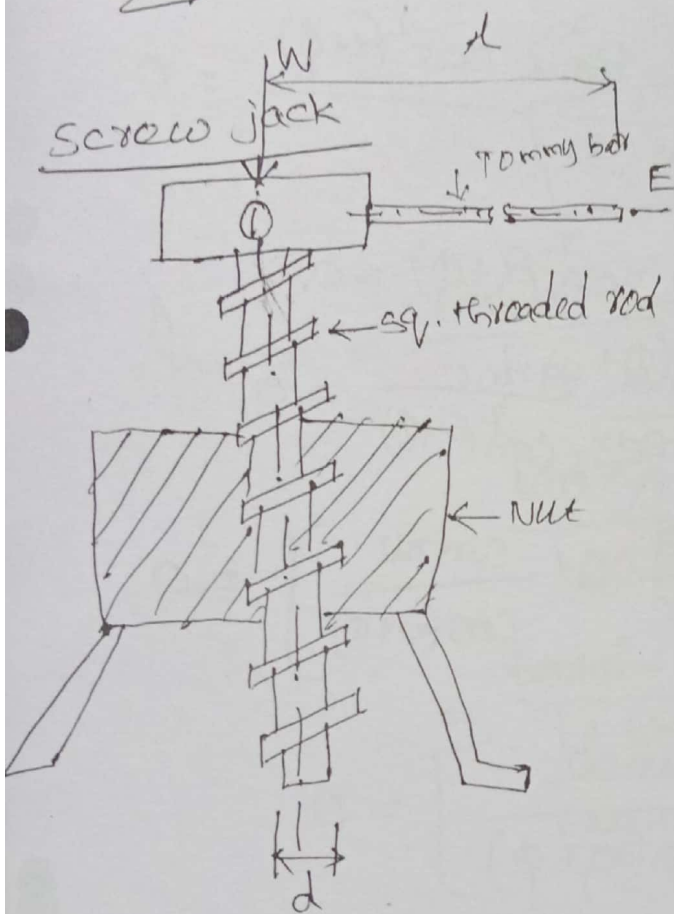 W
l
Screw jack
Tommy bar
E
sq. threaded rod
Nut
d